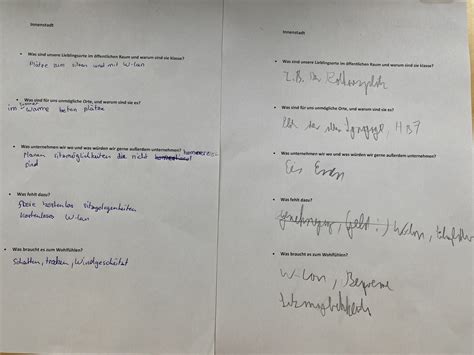 Innenstadt
Was sind unsere Lieblingsorte im öffentlichen Raum und warum sind sie klasse?
Plätze zum sitzen und mit W-Lan
Was sind für uns unmögliche Orte, und warum sind sie es?
im Sommer warme beton plätze
Was unternehmen wir wo und was würden wir gerne außerdem unternehmen?
Planen sitzmöglichkeiten die nicht
sind
Was fehlt dazu?
freie kostenlos sitzgelegenheiten
kostenloses W-Lan
Was braucht es zum Wohlfühlen?
Schatten, trocken, Windgeschützt
Innenstadt
Was sind unsere Lieblingsorte im öffentlichen Raum und warum sind sie klasse?
Z.B. Der
Was sind für uns unmögliche Orte, und warum sind sie es?
Was unternehmen wir wo und was würden wir gerne außerdem unternehmen?
Eis Essen
Was fehlt dazu?
Genehmigung, (Geld :) W-Lan,
Was braucht es zum Wohlfühlen?
W-Lan, Bequeme
Sitzmöglichkeit